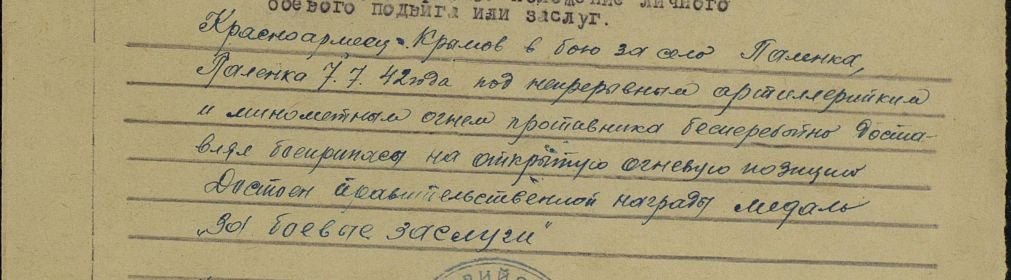 изложение личного
боевого подвига или заслуг.
Красноармеец Крымов в бою за село Паленка,
Паленка 7.7.42 года под непрерывным артиллерийским
и минометным огнем противника бесперебойно доста-
влял боеприпасы на открытую огневую позицию
Достоен правительственной награды медаль
„За боевые заслуги"